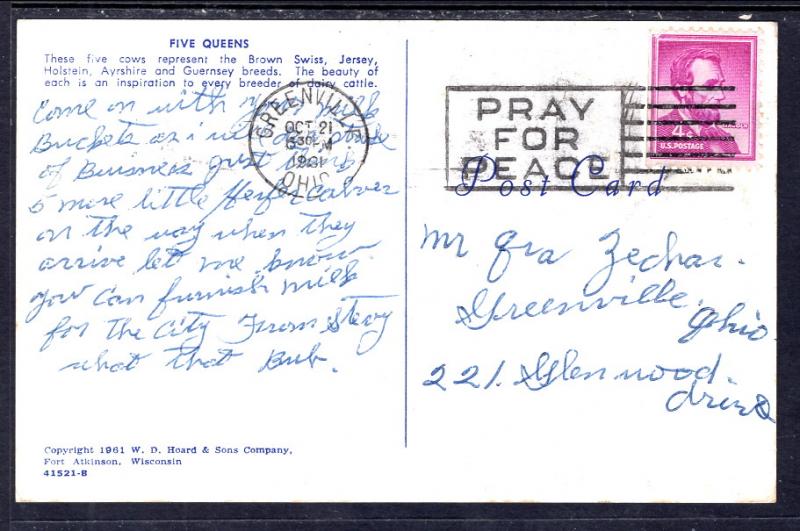 FIVE QUEENS
These five cows represent the Brown Swiss, Jersey,
Holstein, Ayrshire and Guernsey breeds. The beauty of
each is an inspiration to every breeder of dairy cattle.
Come on with your milk
Buckets as i
of Buisness just
5 more little Heifer calves
on the way when they
arrive let me know
you can furnish milk
for the City From
what that Bub.
Copyright 1961 W. D. Hoard & Sons Company,
Fort Atkinson, Wisconsin
41521-B
GREENVILLE
OCT 21
1961
OHIO
PRAY
FOR
PEACE
4¢
LINCOLN
U.S. POSTAGE
Post Card
Mr Ira Zechar.
Greenville.
Ohio
221. Glenwood.
drive